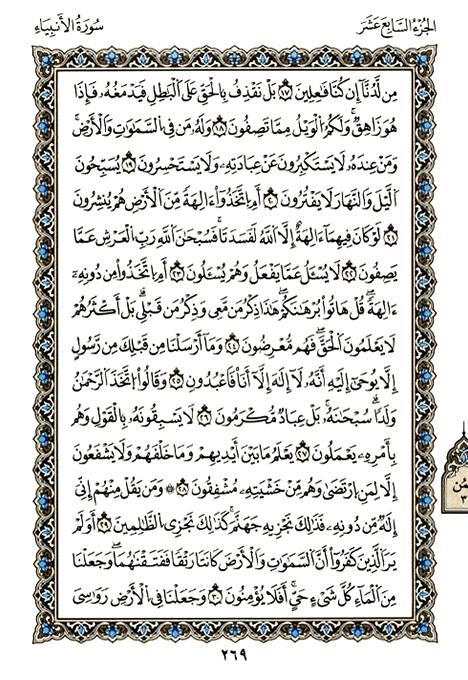 الجُزْءُ السَّابِعَ عَشَرَ
سُورَةُ الأَنبِيَاءِ
مِن لَّدُنَّآ إِن كُنَّا فَٰعِلِينَ ١٧ بَلْ نَقْذِفُ بِالْحَقِّ عَلَى الْبَٰطِلِ فَيَدْمَغُهُۥ فَإِذَا
هُوَ زَاهِقٌ وَلَكُمُ الْوَيْلُ مِمَّا تَصِفُونَ ١٨ وَلَهُۥ مَن فِي السَّمَٰوَٰتِ وَالْأَرْضِ
وَمَنْ عِندَهُۥ لَا يَسْتَكْبِرُونَ عَنْ عِبَادَتِهِۦ وَلَا يَسْتَحْسِرُونَ ١٩ يُسَبِّحُونَ
الَّيْلَ وَالنَّهَارَ لَا يَفْتُرُونَ ٢٠ أَمِ اتَّخَذُوٓاْ ءَالِهَةً مِّنَ الْأَرْضِ هُمْ يُنشِرُونَ
٢١ لَوْ كَانَ فِيهِمَآ ءَالِهَةٌ إِلَّا اللَّهُ لَفَسَدَتَا فَسُبْحَٰنَ اللَّهِ رَبِّ الْعَرْشِ عَمَّا
يَصِفُونَ ٢٢ لَا يُسْـَٔلُ عَمَّا يَفْعَلُ وَهُمْ يُسْـَٔلُونَ ٢٣ أَمِ اتَّخَذُواْ مِن دُونِهِۦٓ
ءَالِهَةً قُلْ هَاتُواْ بُرْهَٰنَكُمْ هَٰذَا ذِكْرُ مَن مَّعِي وَذِكْرُ مَن قَبْلِي بَلْ أَكْثَرُهُمْ
لَا يَعْلَمُونَ الْحَقَّ فَهُم مُّعْرِضُونَ ٢٤ وَمَآ أَرْسَلْنَا مِن قَبْلِكَ مِن رَّسُولٍ
إِلَّا يُوحَىٰٓ إِلَيْهِ أَنَّهُۥ لَآ إِلَٰهَ إِلَّآ أَنَا فَاعْبُدُونِ ٢٥ وَقَالُواْ اتَّخَذَ الرَّحْمَٰنُ
وَلَدًا سُبْحَٰنَهُۥ بَلْ عِبَادٌ مُّكْرَمُونَ ٢٦ لَا يَسْبِقُونَهُۥ بِالْقَوْلِ وَهُم
بِأَمْرِهِۦ يَعْمَلُونَ ٢٧ يَعْلَمُ مَا بَيْنَ أَيْدِيهِمْ وَمَا خَلْفَهُمْ وَلَا يَشْفَعُونَ
إِلَّا لِمَنِ ارْتَضَىٰ وَهُم مِّنْ خَشْيَتِهِۦ مُشْفِقُونَ ٢٨ ۞ وَمَن يَقُلْ مِنْهُمْ إِنِّي
إِلَٰهٌ مِّن دُونِهِۦ فَذَٰلِكَ نَجْزِيهِ جَهَنَّمَ كَذَٰلِكَ نَجْزِي الظَّٰلِمِينَ ٢٩ أَوَلَمْ
يَرَ الَّذِينَ كَفَرُوٓاْ أَنَّ السَّمَٰوَٰتِ وَالْأَرْضَ كَانَتَا رَتْقًا فَفَتَقْنَٰهُمَا وَجَعَلْنَا
مِنَ الْمَآءِ كُلَّ شَيْءٍ حَيٍّ أَفَلَا يُؤْمِنُونَ ٣٠ وَجَعَلْنَا فِي الْأَرْضِ رَوَٰسِيَ
٢٦٩